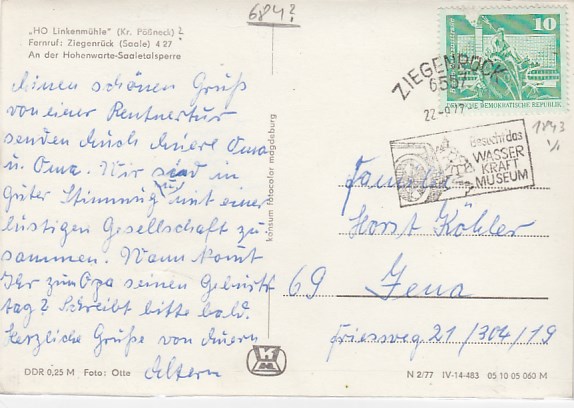 684?
„HO Linkenmühle" (Kr. Pößneck) ?
Fernruf: Ziegenrück (Saale) 4 27
An der Hohenwarte-Saaletalsperre
Einen schönen Gruß
von einer Rentnertur
senden Euch Euere Oma
u. Opa. Wir sind in
guter Stimmung mit einer
lustigen Gesellschaft zu-
sammen. Wann kommt
Ihr zum Opa seinen Geburts
tag? Schreibt bitte bald.
Herzliche Grüße von Euern
Eltern
DDR 0,25 M Foto: Otte
konsum fotocolor magdeburg
10
DEUTSCHE DEMOKRATISCHE REPUBLIK
ZIEGENRÜCK
6557
22-6.77
Besucht das
WASSER
KRAFT
MUSEUM
1843
Familie
Horst Köhler
69 Jena
Friessweg 21/304/19
N 2/77 IV-14-483 05 10 05 060 M